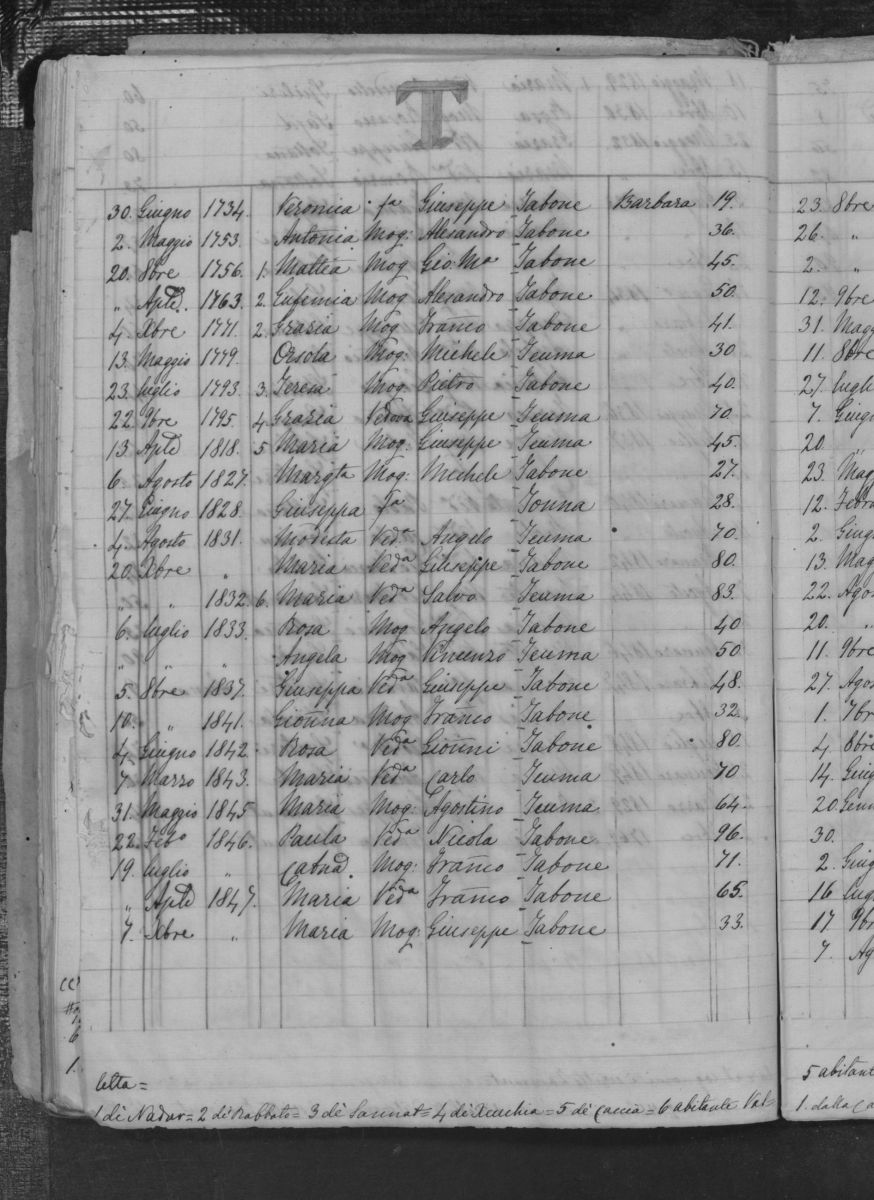 T
30. Giugno 1734. Veronica fa Giuseppe Tabone Barbara 19.
2. Maggio 1753. Antonia Mog: Alesandro Tabone 36.
20. 8bre 1756. 1. Mattea Mog Gio: Ma Tabone 45.
„ Aple. 1763. 2. Eufemia Mog Alesandro Tabone 50.
4. Xbre 1771. 2. Grazia Mog Franco Tabone 41.
13. Maggio 1779. Orsola Mog: Michele Teuma 30
23. luglio 1793. 3. Teresa Mog Pietro Tabone 40.
22. 9bre 1795. 4. Grazia Vedova Giuseppe Teuma 70.
13. Aple 1818. 5 Maria Mog: Giuseppe Teuma 45.
6. Agosto 1827. Margta Mog: Michele Tabone 27.
27. Giugno 1828. Giuseppa fa Tonna 28.
4. Agosto 1831. Modesta Veda Angelo Teuma 70.
20. Xbre „ Maria Veda Giuseppe Tabone 80.
„ „ 1832. 6. Maria Veda Salvo Teuma 83.
6. luglio 1833. Rosa Mog Angelo Tabone 40
„ „ „ Angela Mog Vincenzo Teuma 50
5. 8bre 1837. Giuseppa Veda Giuseppe Tabone 48.
10. „ 1841. Gionna Mog Franco Tabone 32.
4. Giugno 1842. Rosa Veda Gionni Tabone 80.
7. Marzo 1843. Maria Veda Carlo Teuma 70
31. Maggio 1845. Maria Mog: Agostino Teuma 64.
22. Febo 1846. Paula Veda Nicola Tabone 96.
19. luglio „ Catna. Mog: Franco Tabone 71.
„ Aple 1847. Maria Veda Franco Tabone 65.
7. Xbre „ Maria Mog: Giuseppe Tabone 33.
letta=
1 di Nadur= 2 di Rabbato= 3 di Sannat= 4 di Xeuchia= 5 di Caccia= 6 abitante Val=
23. 8bre
26. „
2. „
12. 9bre
31. Magg
11. 8bre
27. lugli
7. Giugn
20. „
23. Magg
12. Febra
2. Giug
13. Magg
22. Agos
20. „
11. 9bre
27. Agos
1. 7br
4. 8bre
14. Giug
20. Genn
30.
2. Giug
16 lug
17. 9br
7. Ag
5 abitant
1. dalla Ca